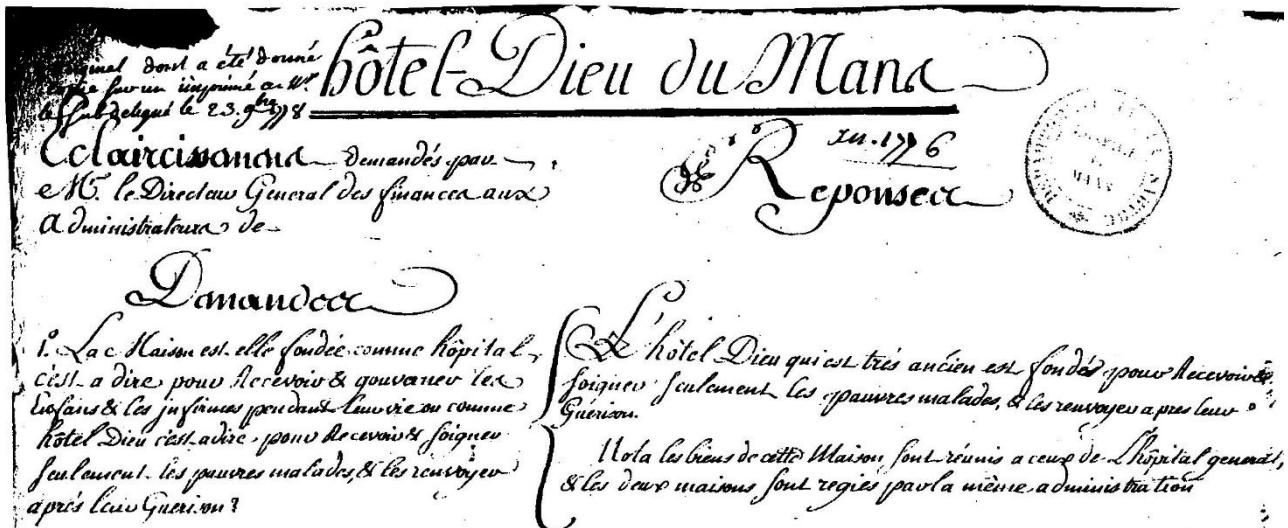 original dont a été donné
copie sur un imprimé a Mr
le Subdelegué le 23. 9bre 1778
hôtel-Dieu du Mans
Eclaircissemens demandés par
Mr. le Directeur General des finances aux
Administrateurs de
Reponses
Demandes
1.° La Maison est elle fondée comme hôpital
c'est a dire pour Recevoir & gouverner les
Enfans & les infirmes pendant leur vie ou comme
hôtel Dieu c'est a dire pour Recevoir & soigner
seulement les pauvres malades, & les renvoyer
aprés leur Guerison?
L'hôtel Dieu qui est trés ancien est fondés pour Recevoir &
soigner seulement les pauvres malades, & les renvoyer apres leur
Guerison.
Nota les biens de cette Maison sont réunis a ceux de L'hôpital general,
& les deux maisons sont regies par la même administration